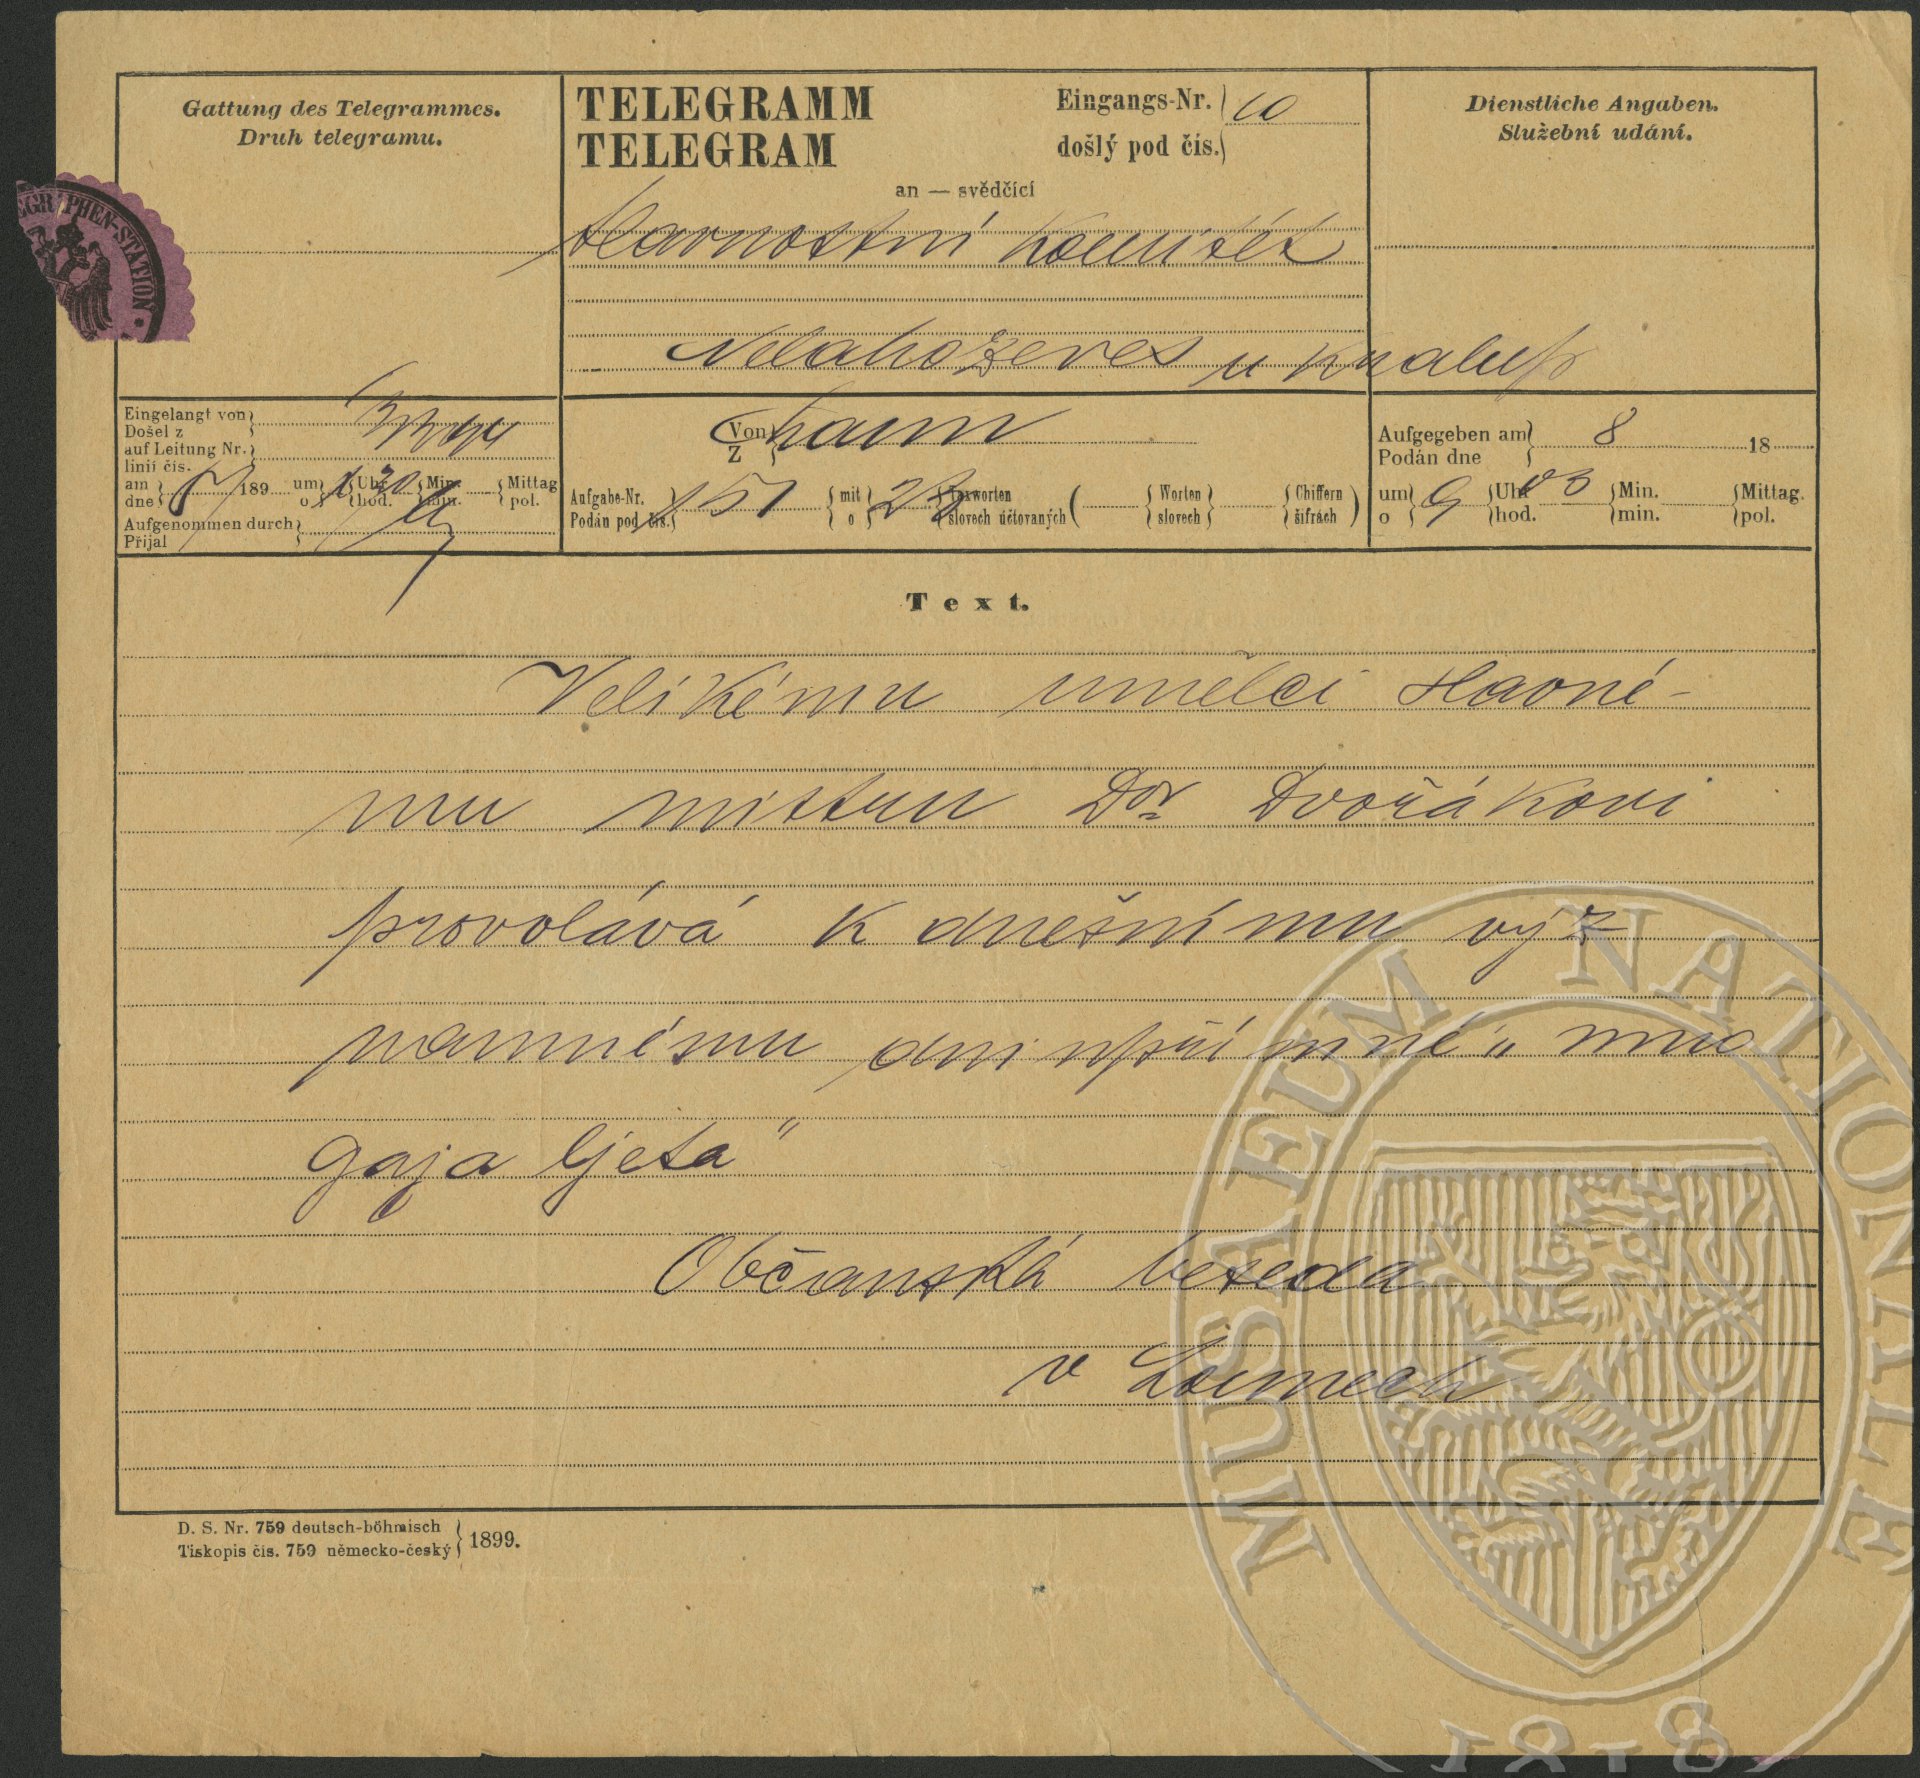 Gattung des Telegrammes.
Druh telegramu.
TELEGRAMM
TELEGRAM
Eingangs-Nr. 10
došlý pod čís.
an — svědčící
Slavnostní komitét
Nelahozeves u Kralup
Dienstliche Angaben.
Služební udání.
EGRAPHEN-STATION
Eingelangt von
Došel z
auf Leitung Nr.
linii čís.
am
dne
189
um
o
Uhr
hod.
Min.
min.
Mittag
pol.
Aufgenommen durch
Přijal
Von
Z
Aufgabe-Nr.
Podán pod čís.
151
mit
o
22
Taxworten
slovech účtovaných
Worten
slovech
Chiffern
šifrách
Aufgegeben am 8 18
Podán dne
um
o
9
Uhr
hod.
03
Min.
min.
Mittag.
pol.
Text.
Velikému umělci slavné-
mu mistru Dor Dvořákovi
provolává k dnešnímu výz
namnému dni upřímné „mno
gaja ljeta"
Občanská beseda
v
D. S. Nr. 759 deutsch-böhmisch
Tiskopis čís. 759 německo-český
1899.
MUSAEUM NATIONALE
1818